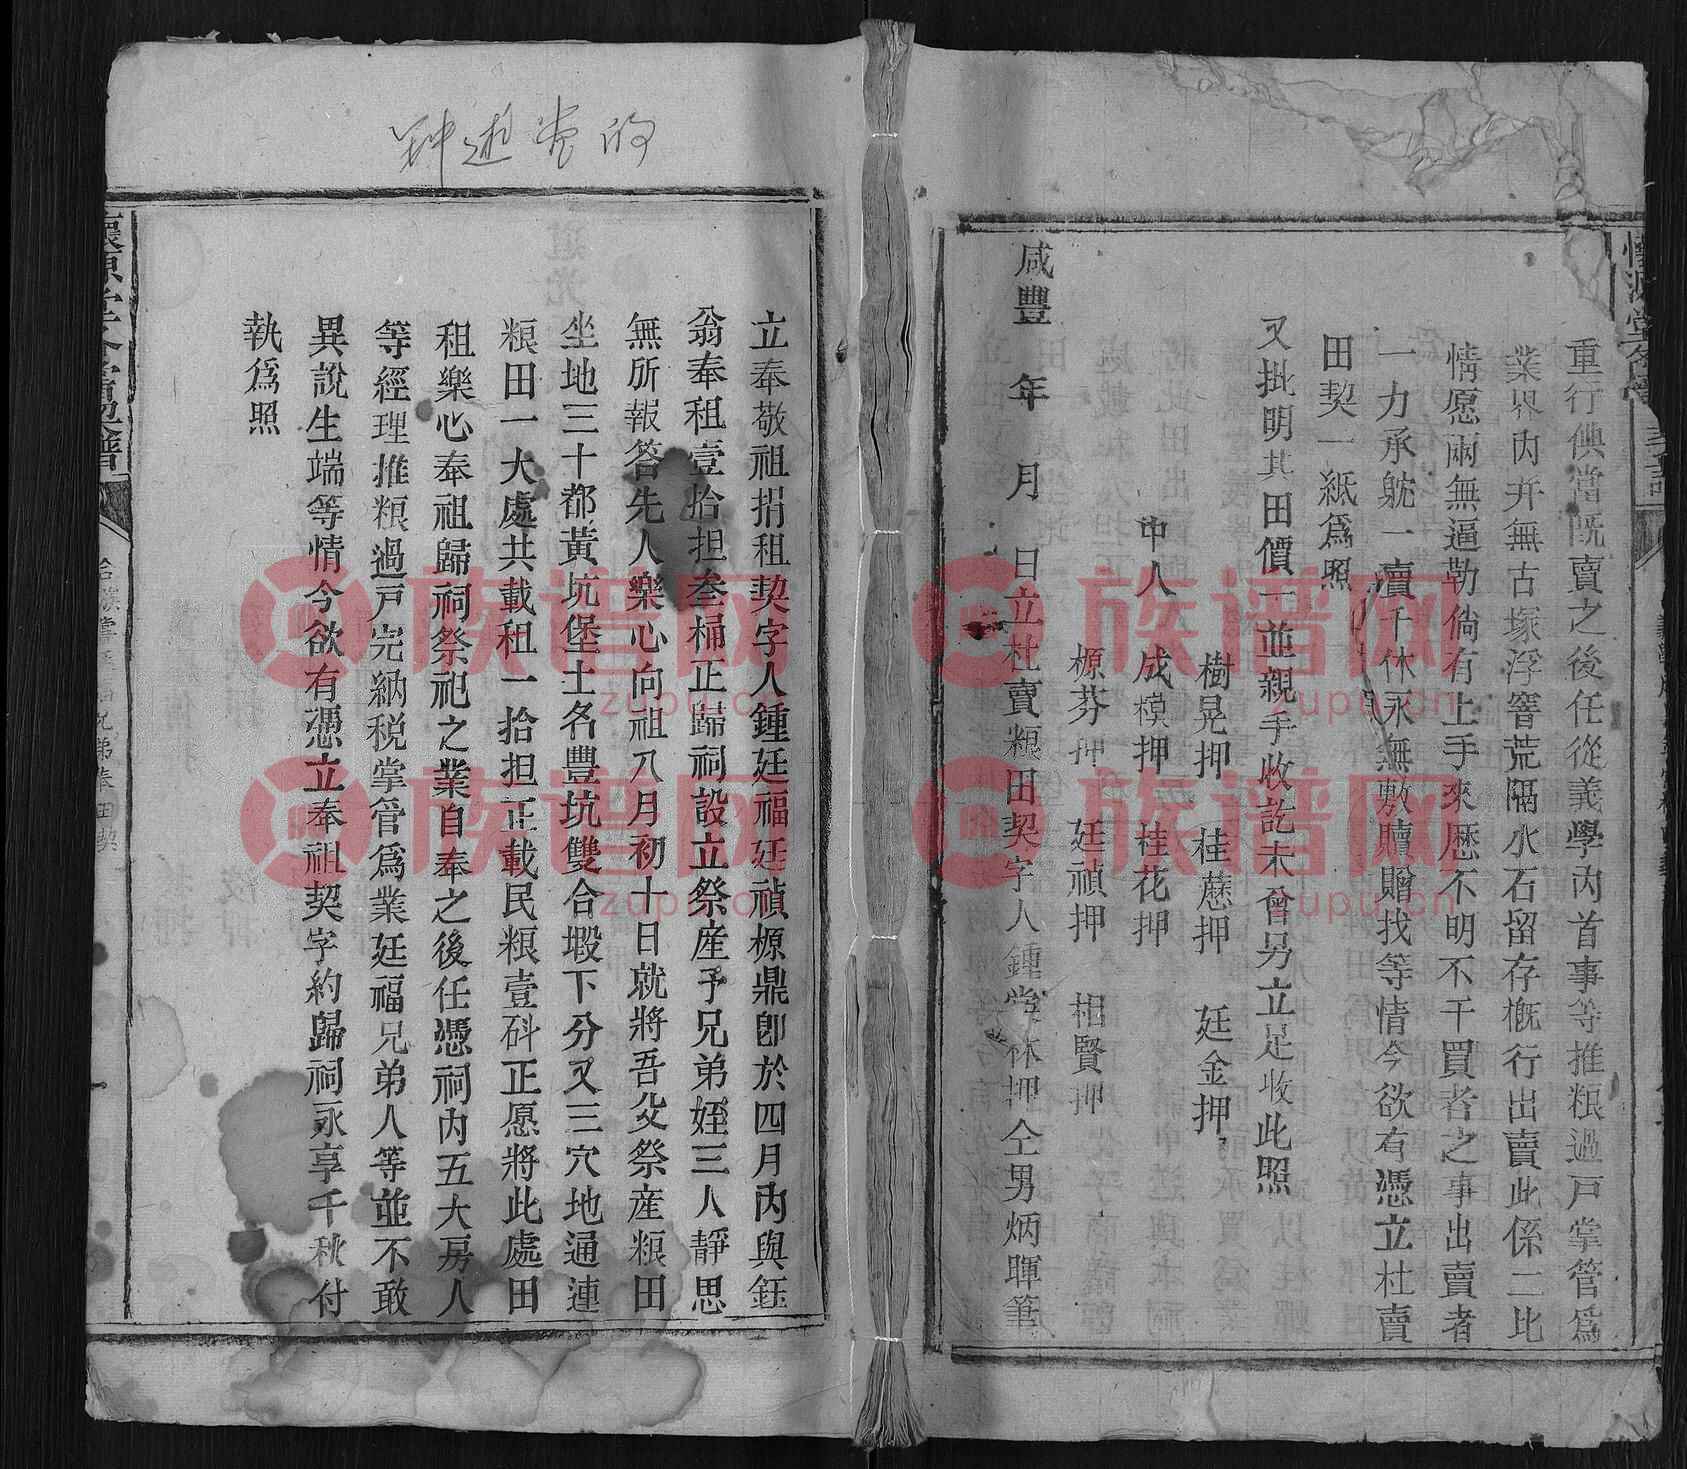 重行佃當既賣之後任從義學內首事等推粮過戶掌管爲
業界內幷無古塚浮窨荒隔水石留存概行出賣此係二比
情愿兩無逼勒倘有上手來歷不明不干買者之事出賣者
一力承躭一賣千休永無敷贖贈找等情今欲有憑立杜賣
田契一紙爲照
又批明其田價一並親手收訖未曾另立足收此照
樹晃押 桂蕙押 廷金押
中人 成模押 桂花押
榞芬押 廷禎押 相賢押
咸豐 年 月 日立杜賣粮田契字人鍾 林押仝男炳暉筆
立奉敬祖捐租契字人鍾廷福廷禎榞鼎卽於四月內與鈺
翁奉租壹拾担叁桶正歸祠設立祭産予兄弟姪三人靜思
無所報答先人樂心向祖八月初十日就將吾父祭産粮田
坐地三十都黃坑堡土名豐坑雙合塅下分又三穴地通連
粮田一大處共載租一拾担正載民粮壹𣁽正愿將此處田
租樂心奉祖歸祠祭祀之業自奉之後任憑祠內五大房人
等經理推粮過戶完納税掌管爲業廷福兄弟人等並不敢
異說生端等情今欲有憑立奉祖契字約歸祠永享千秋付
執爲照
族谱网
zupu.cn
族谱网
zupu.cn
族谱网
zupu.cn
族谱网
zupu.cn